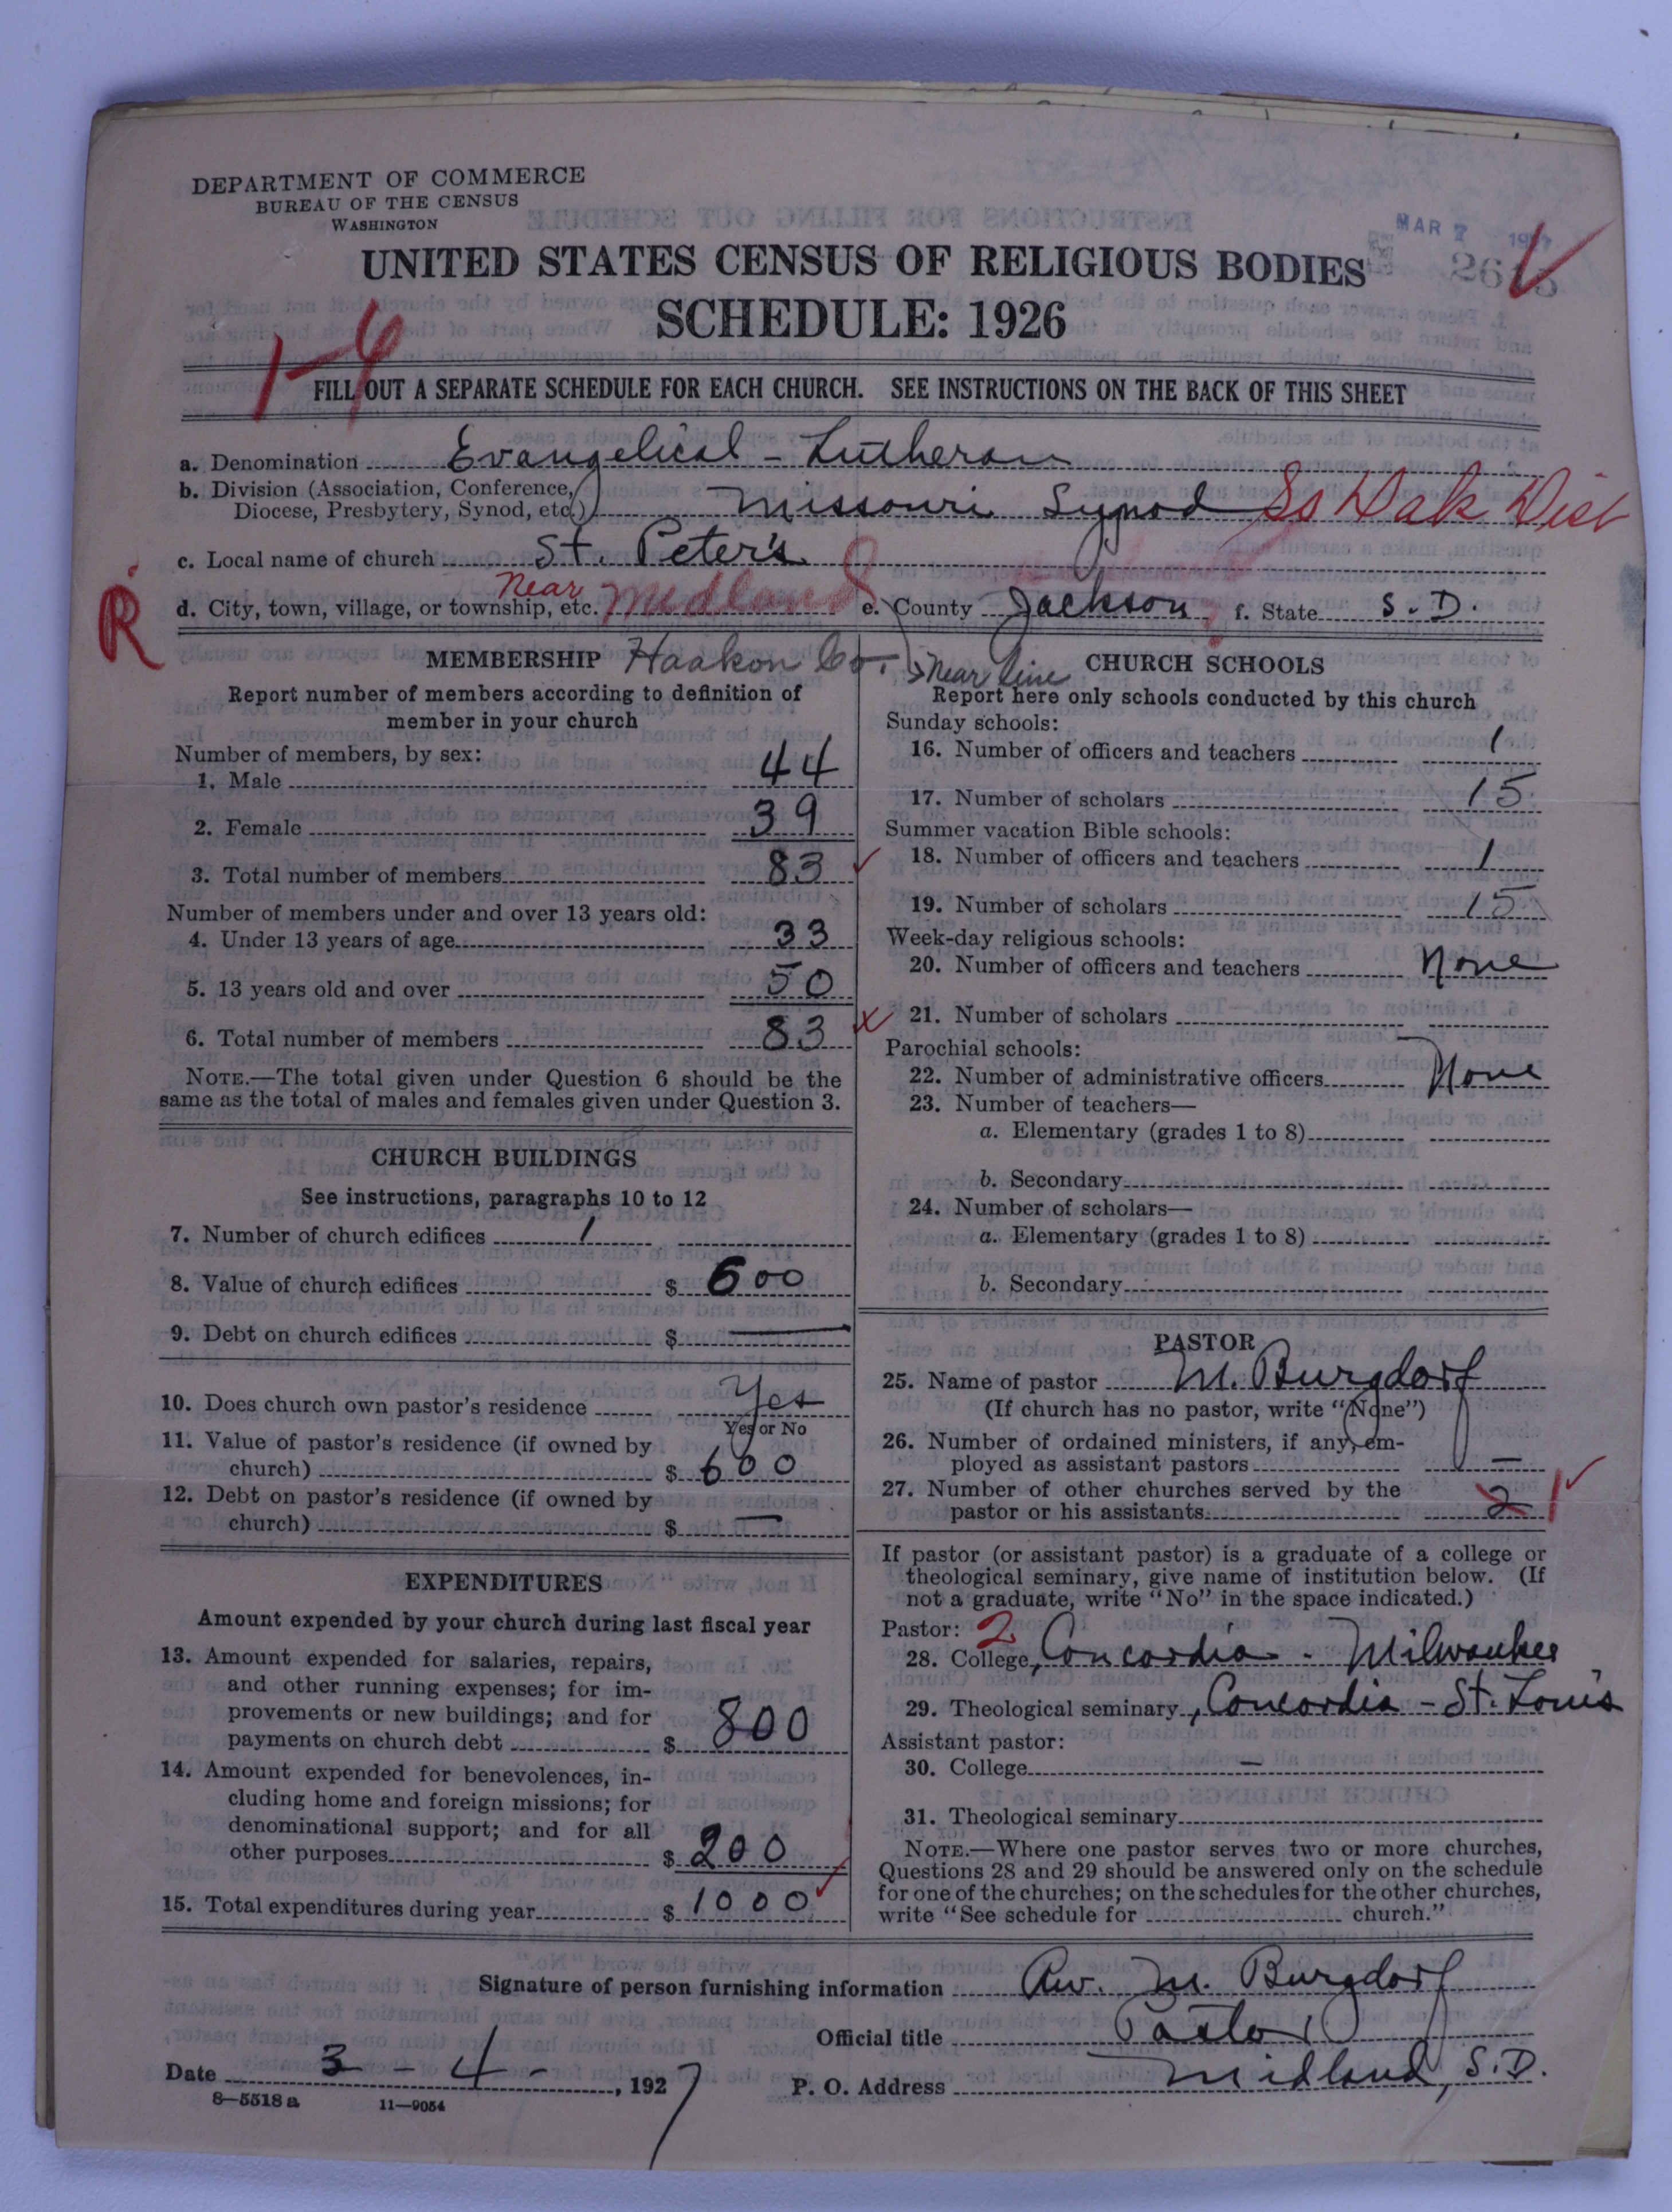 DEPARTMENT OF COMMERCE
BUREAU OF THE CENSUS
WASHINGTON
MAR 7 1927
UNITED STATES CENSUS OF RELIGIOUS BODIES
SCHEDULE: 1926
1-4
FILL OUT A SEPARATE SCHEDULE FOR EACH CHURCH. SEE INSTRUCTIONS ON THE BACK OF THIS SHEET
a. Denomination Evangelical - Lutheran
b. Division (Association, Conference,
Diocese, Presbytery, Synod, etc.) Missouri Synod So Dak Dist
c. Local name of church St. Peter's
R
d. City, town, village, or township, etc. Near Midland e. County Jackson f. State S. D.
MEMBERSHIP Haakon Co. Near line
Report number of members according to definition of
member in your church
Number of members, by sex:
1. Male 44
2. Female 39
3. Total number of members 83
Number of members under and over 13 years old:
4. Under 13 years of age 33
5. 13 years old and over 50
6. Total number of members 83
NOTE.—The total given under Question 6 should be the
same as the total of males and females given under Question 3.
CHURCH BUILDINGS
See instructions, paragraphs 10 to 12
7. Number of church edifices 1
8. Value of church edifices $ 600
9. Debt on church edifices $ —
10. Does church own pastor's residence Yes
Yes or No
11. Value of pastor's residence (if owned by
church) $ 600
12. Debt on pastor's residence (if owned by
church) $ —
EXPENDITURES
Amount expended by your church during last fiscal year
13. Amount expended for salaries, repairs,
and other running expenses; for im-
provements or new buildings; and for
payments on church debt $ 800
14. Amount expended for benevolences, in-
cluding home and foreign missions; for
denominational support; and for all
other purposes $ 200
15. Total expenditures during year $ 1000
CHURCH SCHOOLS
Report here only schools conducted by this church
Sunday schools:
16. Number of officers and teachers 1
17. Number of scholars 15
Summer vacation Bible schools:
18. Number of officers and teachers 1
19. Number of scholars 15
Week-day religious schools:
20. Number of officers and teachers None
21. Number of scholars
Parochial schools:
22. Number of administrative officers None
23. Number of teachers—
a. Elementary (grades 1 to 8)
b. Secondary
24. Number of scholars—
a. Elementary (grades 1 to 8)
b. Secondary
PASTOR
25. Name of pastor M. Burgdorf
(If church has no pastor, write "None")
26. Number of ordained ministers, if any, em-
ployed as assistant pastors —
27. Number of other churches served by the
pastor or his assistants 2 1
If pastor (or assistant pastor) is a graduate of a college or
theological seminary, give name of institution below. (If
not a graduate, write "No" in the space indicated.)
Pastor: 2
28. College, Concordia - Milwaukee
29. Theological seminary, Concordia - St. Louis
Assistant pastor:
30. College —
31. Theological seminary
NOTE.—Where one pastor serves two or more churches,
Questions 28 and 29 should be answered only on the schedule
for one of the churches; on the schedules for the other churches,
write "See schedule for church."
Signature of person furnishing information Rev. M. Burgdorf
Official title Pastor
Date 3 - 4 - , 1927
P. O. Address Midland, S.D.
8—5518 a 11—9054